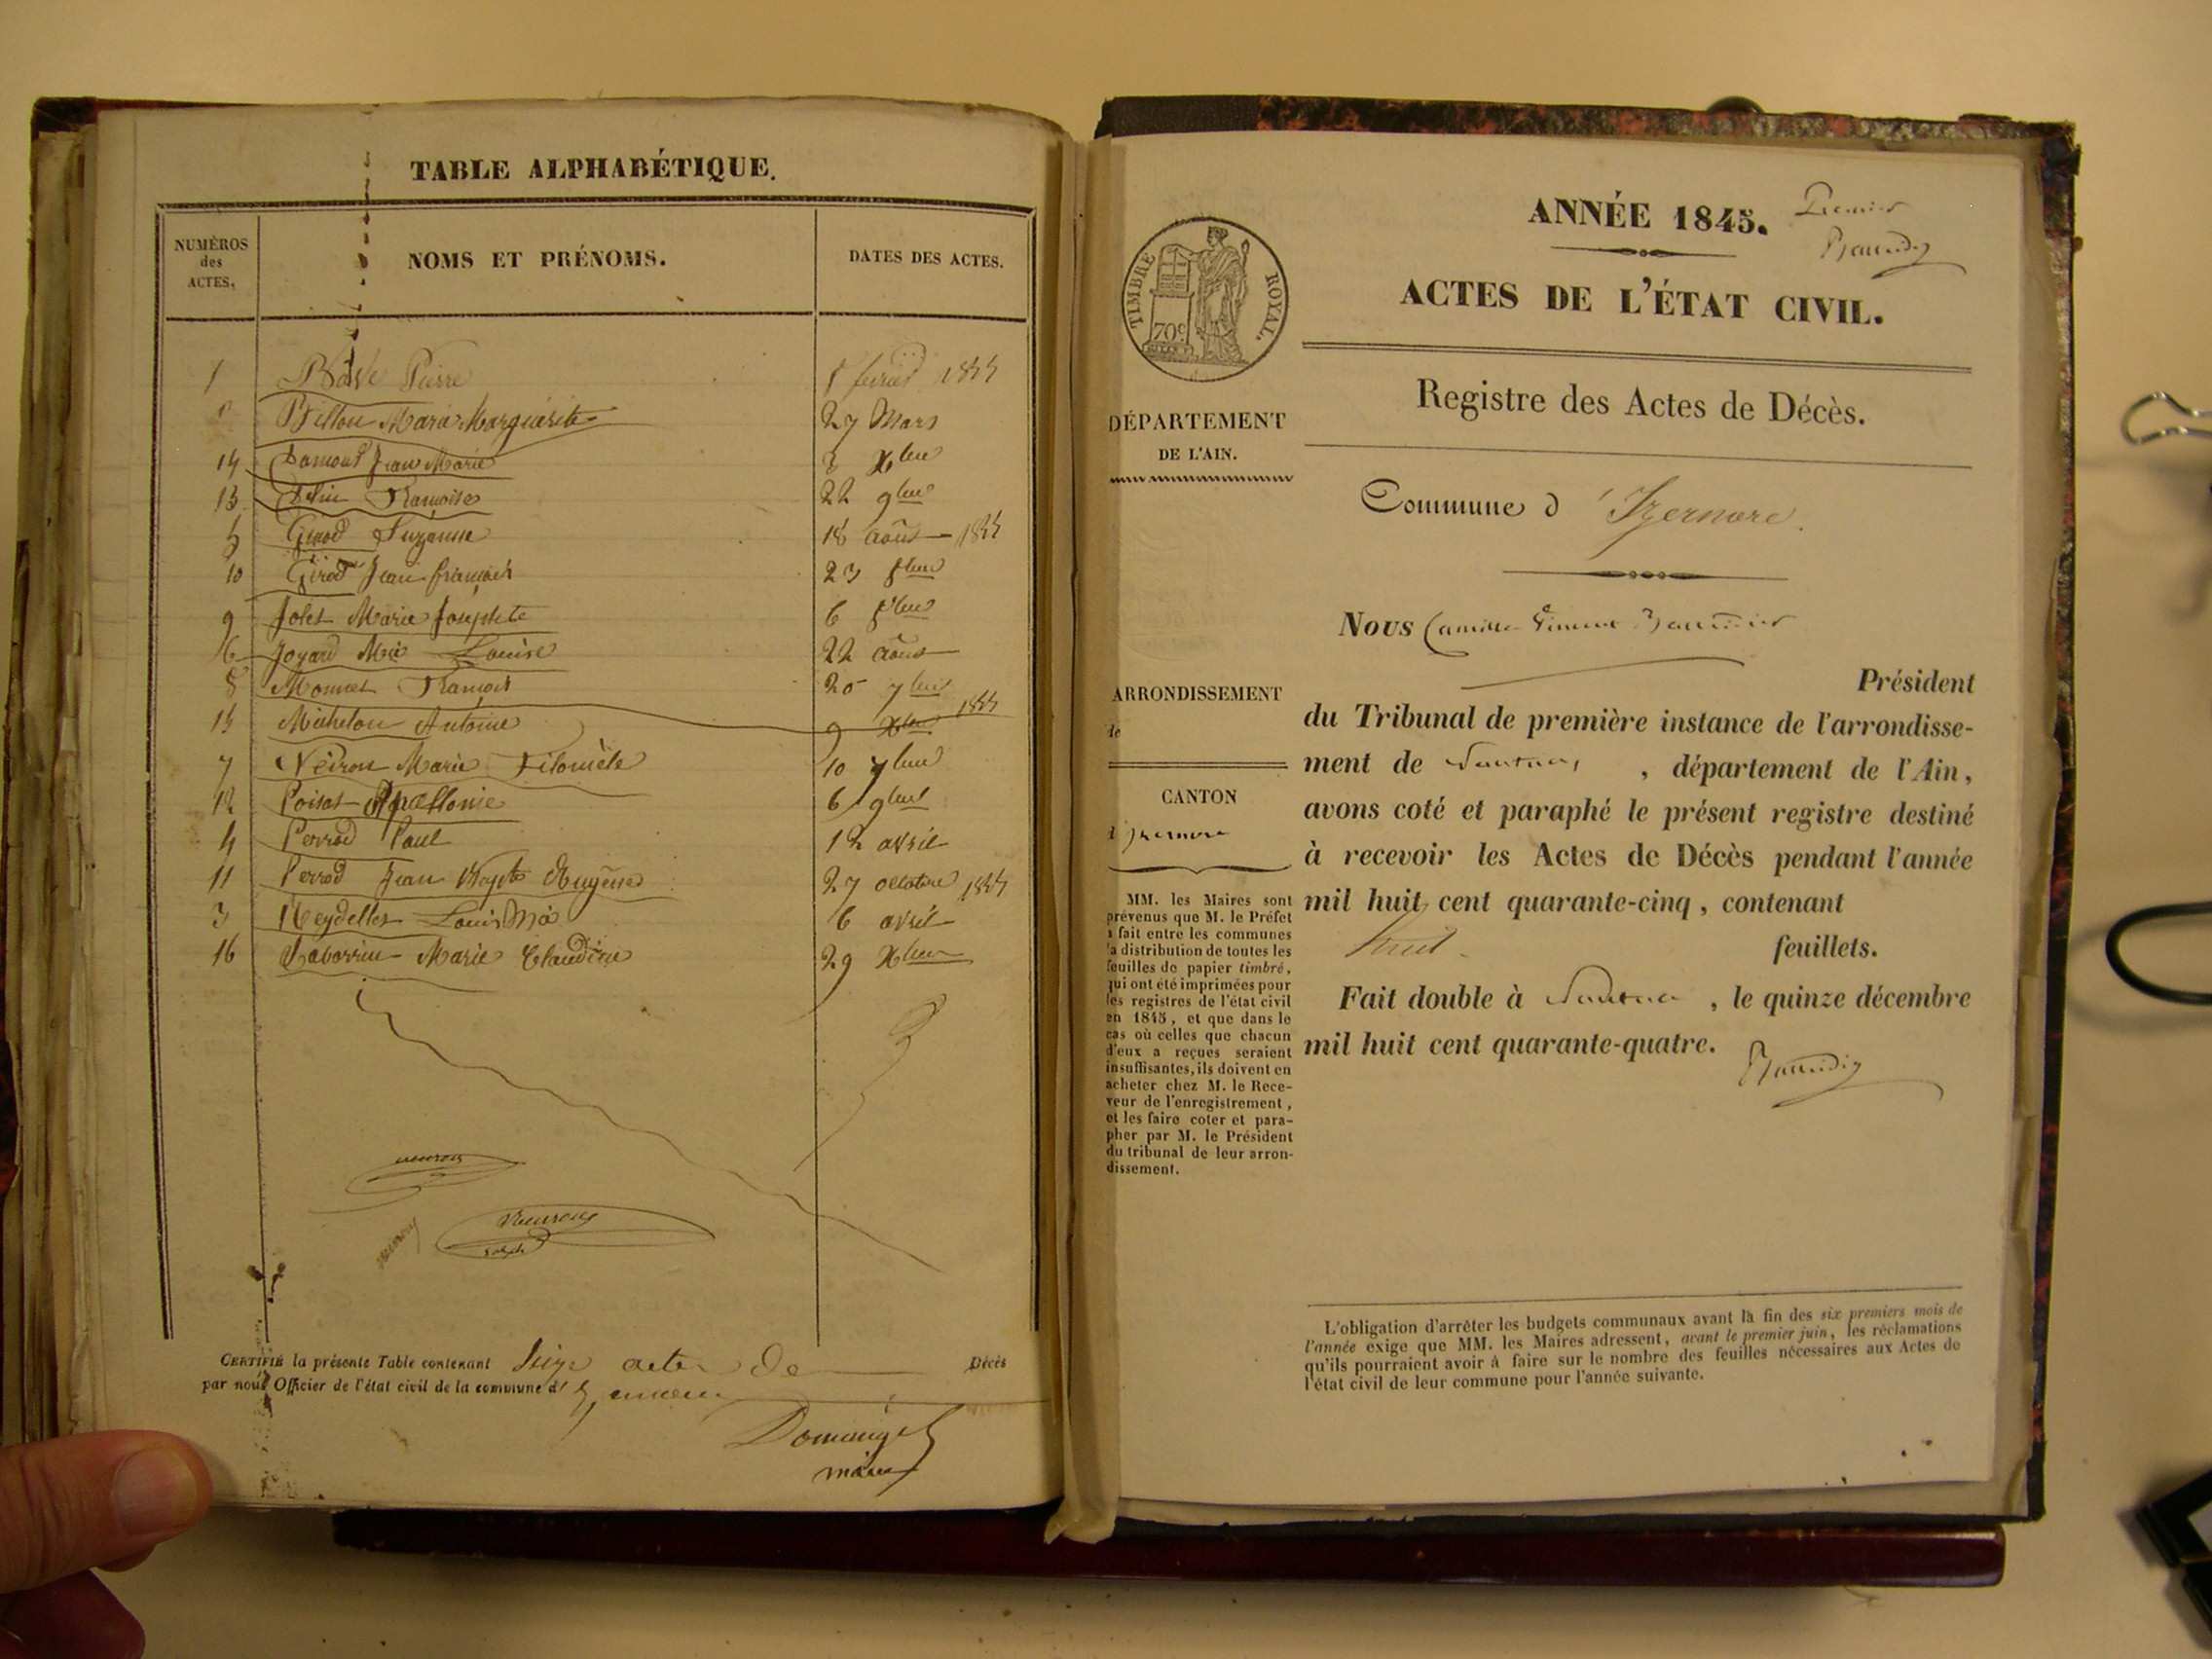 TABLE ALPHABÉTIQUE.
NUMÉROS
des
ACTES.
NOMS ET PRÉNOMS.
DATES DES ACTES.
1 Pierre 1 février 1844
Billon Marie Marguerite 27 Mars
14 Jean Marie 8 Xbre
13 Françoise 22 9bre
5 Girod Suzanne 18 août 1844
10 Girod Jean françois 23 8bre
9 Jolet Marie Josephte 6 8bre
6 Joyard Mie Louise 22 août
8 Monnet François 20 7bre
15 Michelon Antoine 9 Xbre 1844
7 Neiron Marie 10 7bre
12 Poisat Apollonie 6 9bre
4 Perrod Paul 12 avril
11 Perrod Jean Bapte Eugène 27 octobre 1844
3 Reydellet Louis 6 avril
16 Marie Claudine 29 Xbre
CERTIFIÉ la présente Table contenant Seize actes de Décès
par nous Officier de l'état civil de la commune d'
maire
ANNÉE 1845.
Premier
ACTES DE L'ÉTAT CIVIL.
TIMBRE ROYAL.
70c
Registre des Actes de Décès.
DÉPARTEMENT
DE L'AIN.
Commune d'Izernore.
Nous Camille
Président
ARRONDISSEMENT
de
du Tribunal de première instance de l'arrondisse-
ment de Nantua, département de l'Ain,
CANTON
d'Izernore
avons coté et paraphé le présent registre destiné
à recevoir les Actes de Décès pendant l'année
mil huit cent quarante-cinq, contenant
huit feuillets.
Fait double à Nantua, le quinze décembre
mil huit cent quarante-quatre.
MM. les Maires sont
prévenus que M. le Préfet
a fait entre les communes
la distribution de toutes les
feuilles de papier timbré,
qui ont été imprimées pour
les registres de l'état civil
en 1845, et que dans le
cas où celles que chacun
d'eux a reçues seraient
insuffisantes, ils doivent en
acheter chez M. le Rece-
veur de l'enregistrement,
et les faire coter et para-
pher par M. le Président
du tribunal de leur arron-
dissement.
L'obligation d'arrêter les budgets communaux avant la fin des six premiers mois de
l'année exige que MM. les Maires adressent, avant le premier juin, les réclamations
qu'ils pourraient avoir à faire sur le nombre des feuilles nécessaires aux Actes de
l'état civil de leur commune pour l'année suivante.